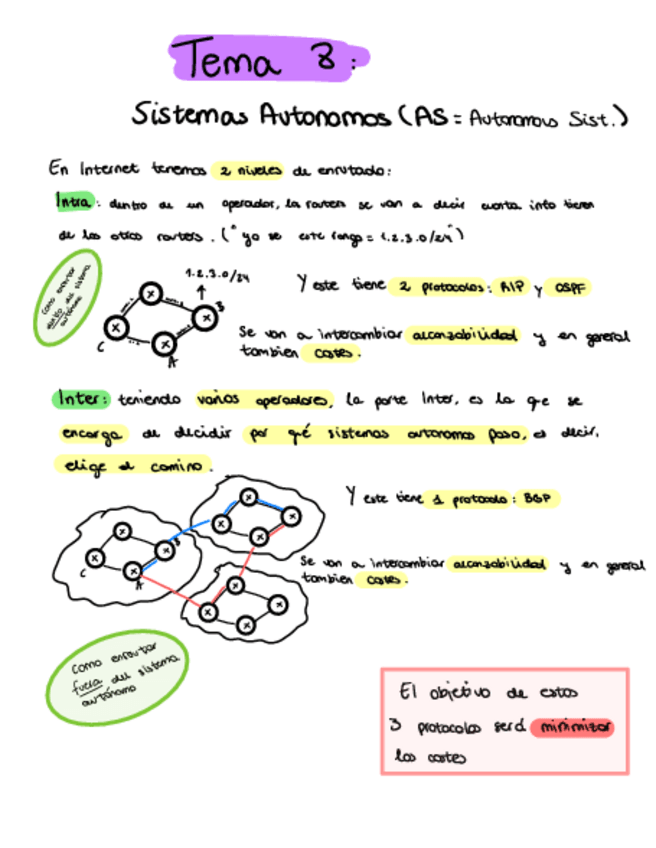 Tema 8:
Sistemas Autonomos (AS = Autonomous Sist.)
En Internet tenemos 2 niveles de enrutado:
Intra: dentro de un operador, los routers se van a decir cuanta info tienen
de los otros routers. ("yo se este rango = 1.2.3.0/24")
como enrutar
dentro del sistema
autónomo
1.2.3.0/24
B
C
A
Y este tiene 2 protocolos: RIP y OSPF
Se van a intercambiar alcanzabilidad y en general
tambien costes.
Inter: teniendo varios operadores, la parte Inter, es la que se
encarga de decidir por qué sistemas autonomos paso, es decir,
elige el camino.
B
C
A
Y este tiene 1 protocolo: BGP
Se van a intercambiar alcanzabilidad y en general
tambien costes.
como enrutar
fuera del sistema
autónomo
El objetivo de estos
3 protocolos será minimizar
los costes